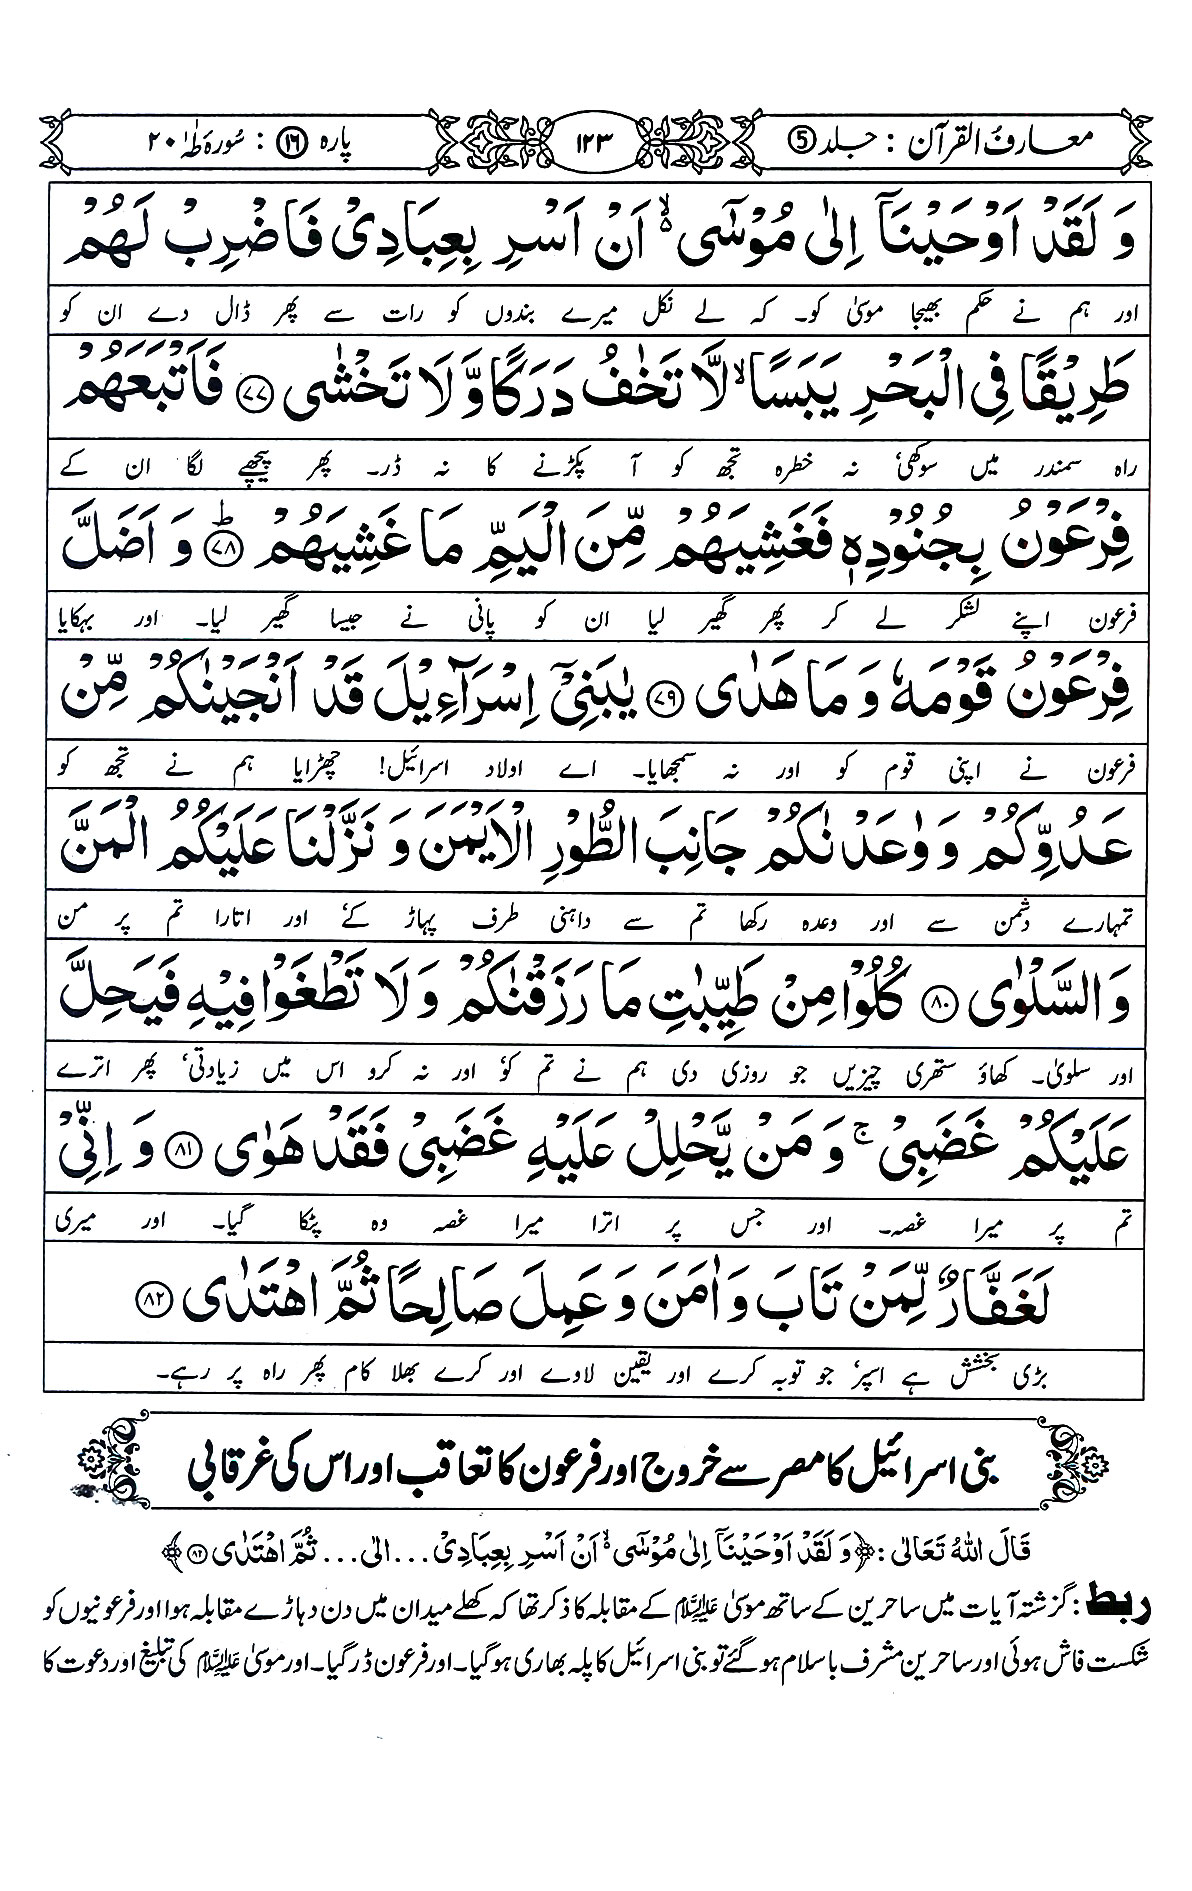 معارف القرآن : جلد 5
۱۲۳
پارہ ۱۶ : سُورَۃ طٰہٰ ۲۰
وَ لَقَدْ اَوْحَیْنَاۤ اِلٰی مُوْسٰۤی ۙ۬ اَنْ اَسْرِ بِعِبَادِیْ فَاضْرِبْ لَهُمْ
اور ہم نے حکم بھیجا موسیٰ کو۔ کہ لے نکل میرے بندوں کو رات سے پھر ڈال دے ان کو
طَرِیْقًا فِی الْبَحْرِ یَبَسًا ۙ لَّا تَخٰفُ دَرَكًا وَّ لَا تَخْشٰی ﴿۷۷﴾ فَاَتْبَعَهُمْ
راہ سمندر میں سوکھی٬ نہ خطرہ تجھ کو آ پکڑنے کا نہ ڈر۔ پھر پیچھے لگا ان کے
فِرْعَوْنُ بِجُنُوْدِهٖ فَغَشِیَهُمْ مِّنَ الْیَمِّ مَا غَشِیَهُمْ ﴿۷۸﴾ؕ وَ اَضَلَّ
فرعون اپنے لشکر لے کر پھر گھیر لیا ان کو پانی نے جیسا گھیر لیا۔ اور بہکایا
فِرْعَوْنُ قَوْمَهٗ وَ مَا هَدٰی ﴿۷۹﴾ یٰبَنِیْۤ اِسْرَآءِیْلَ قَدْ اَنْجَیْنٰكُمْ مِّنْ
فرعون نے اپنی قوم کو اور نہ سمجھایا۔ اے اولاد اسرائیل! چھڑایا ہم نے تجھ کو
عَدُوِّكُمْ وَ وٰعَدْنٰكُمْ جَانِبَ الطُّوْرِ الْاَیْمَنَ وَ نَزَّلْنَا عَلَیْكُمُ الْمَنَّ
تمہارے دشمن سے اور وعدہ رکھا تم سے داہنی طرف پہاڑ کے٬ اور اتارا تم پر من
وَ السَّلْوٰی ﴿۸۰﴾ كُلُوْا مِنْ طَیِّبٰتِ مَا رَزَقْنٰكُمْ وَ لَا تَطْغَوْا فِیْهِ فَیَحِلَّ
اور سلویٰ۔ کھاؤ ستھری چیزیں جو روزی دی ہم نے تم کو٬ اور نہ کرو اس میں زیادتی٬ پھر اترے
عَلَیْكُمْ غَضَبِیْ ۚ وَ مَنْ یَّحْلِلْ عَلَیْهِ غَضَبِیْ فَقَدْ هَوٰی ﴿۸۱﴾ وَ اِنِّیْ
تم پر میرا غصہ۔ اور جس پر اترا میرا غصہ وہ پٹکا گیا۔ اور میری
لَغَفَّارٌ لِّمَنْ تَابَ وَ اٰمَنَ وَ عَمِلَ صَالِحًا ثُمَّ اهْتَدٰی ﴿۸۲﴾
بڑی بخشش ہے اسپر٬ جو توبہ کرے اور یقین لاوے اور کرے بھلا کام پھر راہ پر رہے۔
بنی اسرائیل کا مصر سے خروج اور فرعون کا تعاقب اور اس کی غرقابی
قَالَ اللهُ تَعَالٰی : ﴿وَ لَقَدْ اَوْحَیْنَاۤ اِلٰی مُوْسٰۤی ۙ اَنْ اَسْرِ بِعِبَادِیْ ... الی ... ثُمَّ اهْتَدٰی ۸۲﴾
ربط : گزشتہ آیات میں ساحرین کے ساتھ موسیٰ علیہ السلام کے مقابلہ کا ذکر تھا کہ کھلے میدان میں دن دہاڑے مقابلہ ہوا اور فرعونیوں کو
شکست فاش ہوئی اور ساحرین مشرف باسلام ہو گئے تو بنی اسرائیل کا پلہ بھاری ہو گیا۔ اور فرعون ڈر گیا۔ اور موسیٰ علیہ السلام کی تبلیغ اور دعوت کا